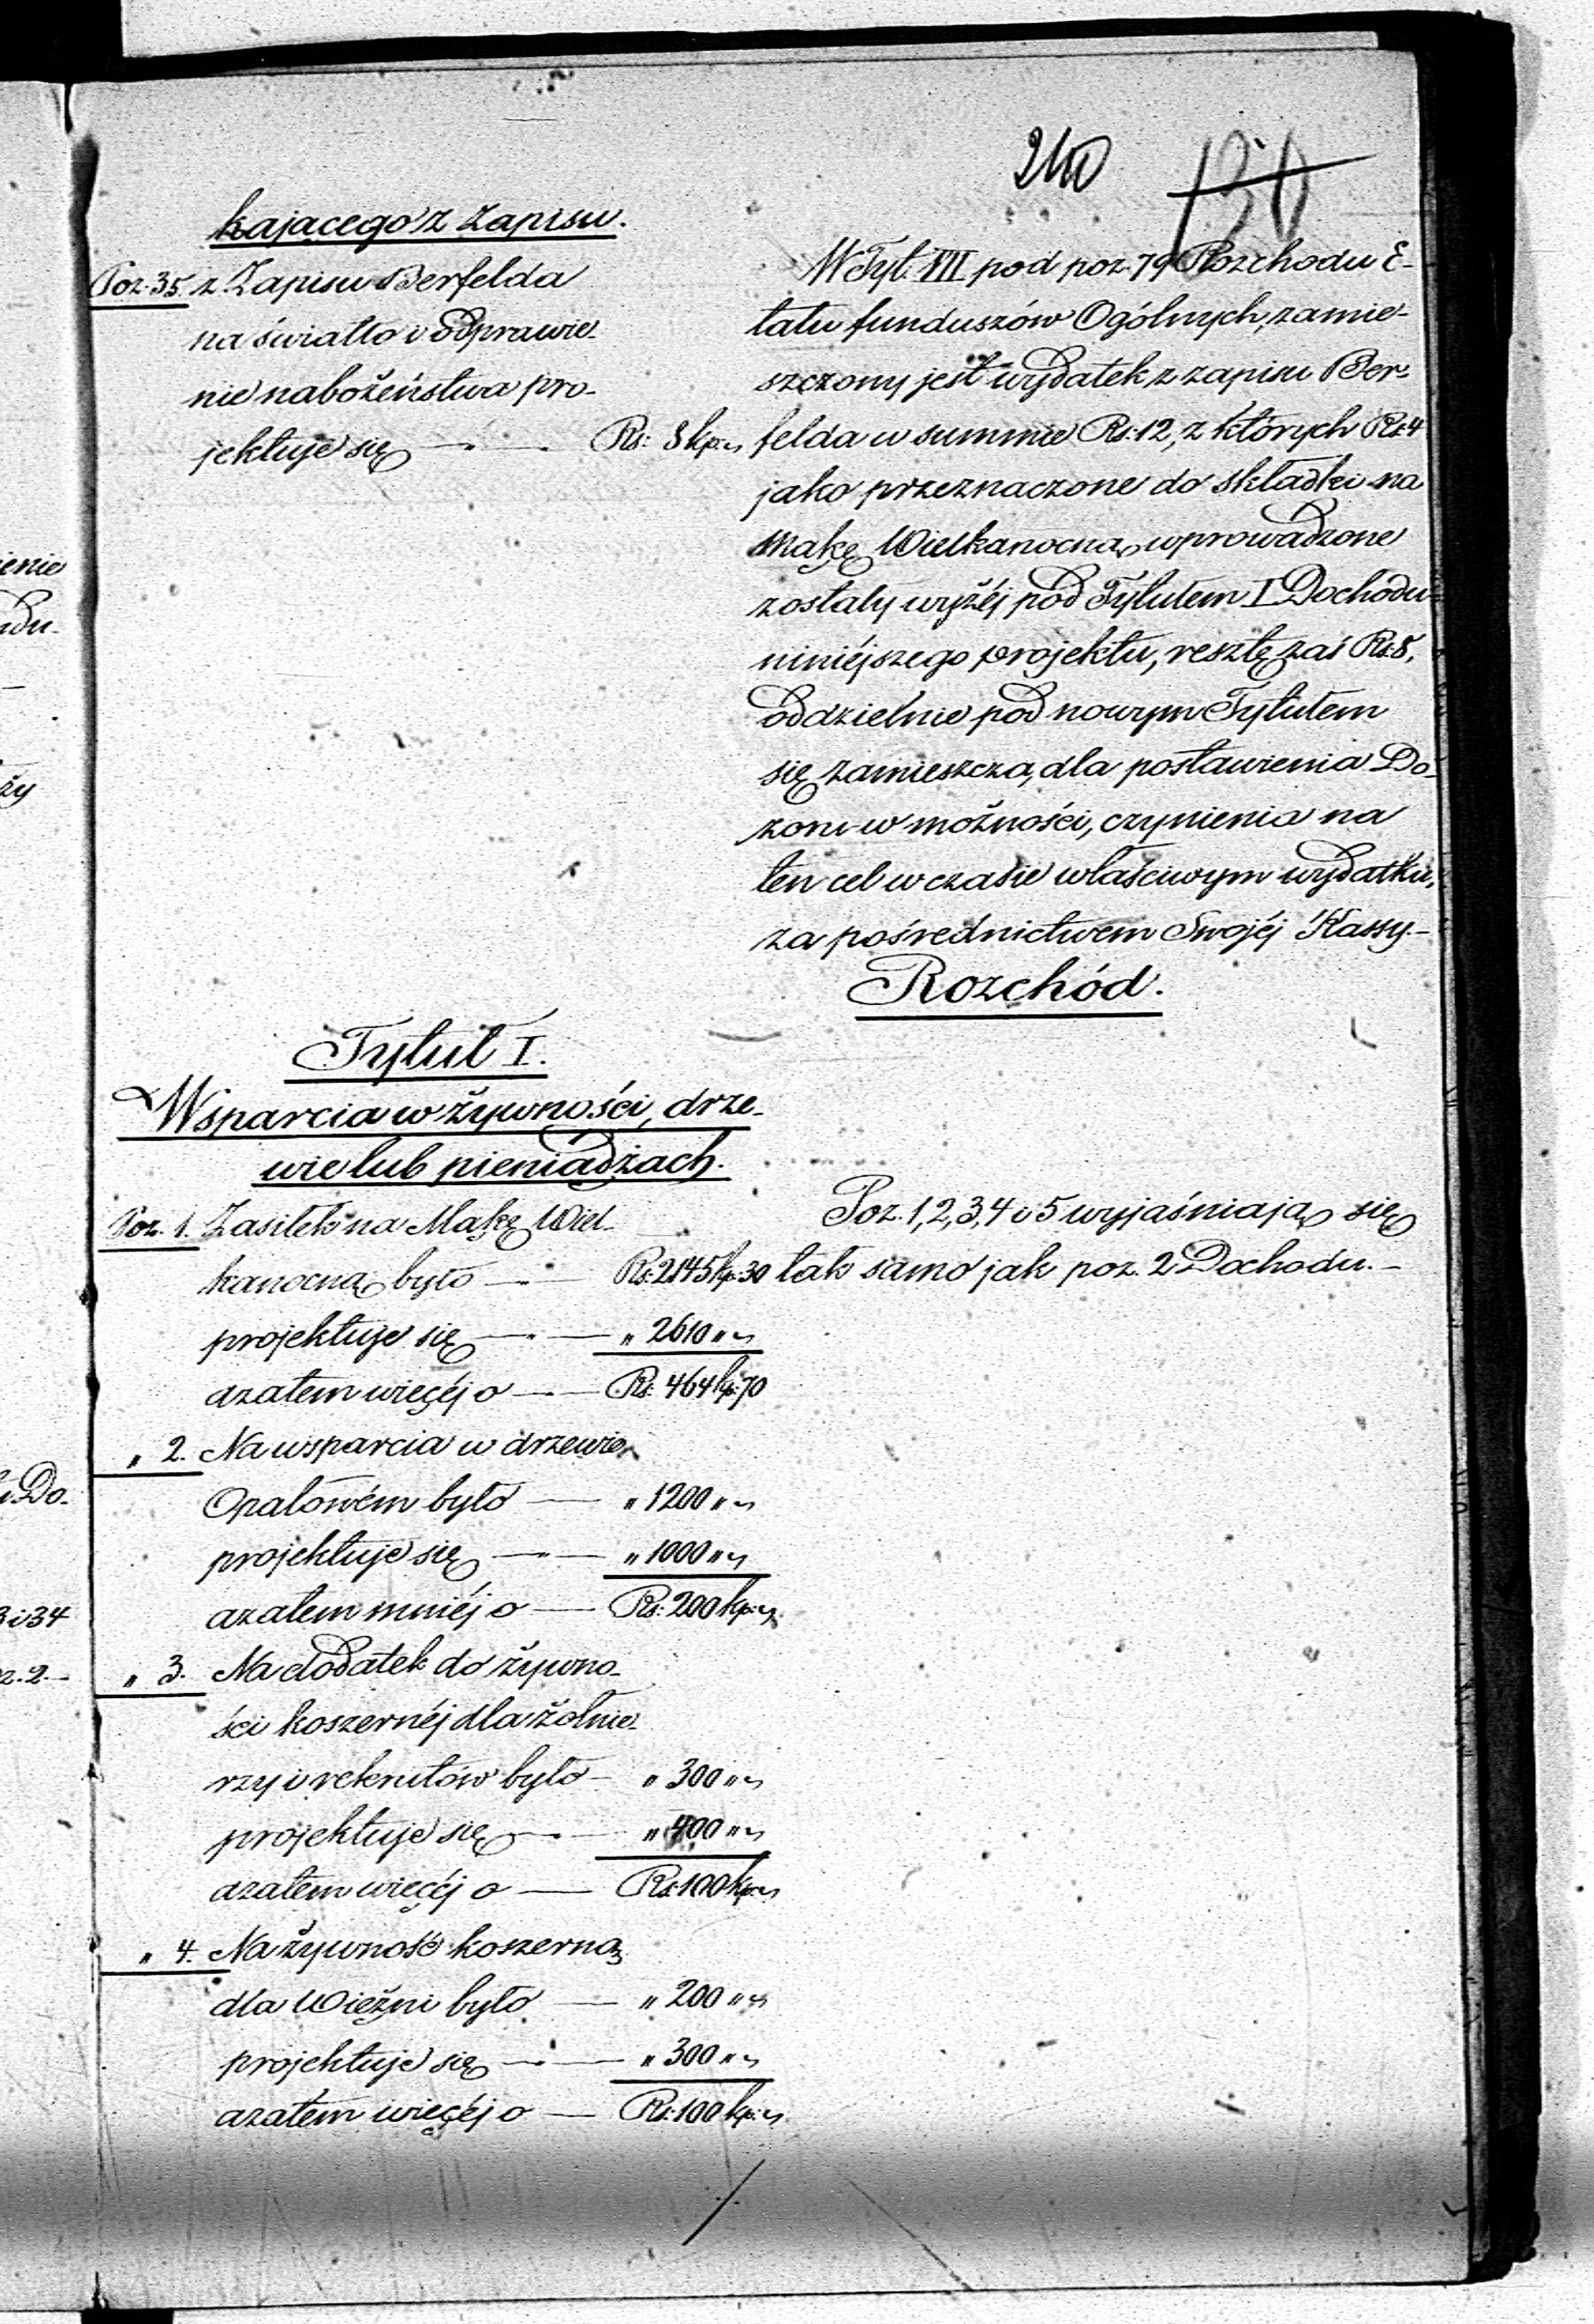 240 130
kającego z Zapisu.
Poz. 35 z Zapisu Berfelda
na światło i odprawie-
nie nabożeństwa pro-
jektuje się — Rs: 8 kp. „
W Tyt. VII pod poz. 79 Rozchodu E-
tatu funduszów Ogólnych, zamie-
szczony jest wydatek z zapisu Ber-
felda w summie Rs: 12, z których Rs: 4
jako przeznaczone do składki na
Mąkę Wielkanocną, wprowadzone
zostały wyżéj pod Tytułem I Dochodu
niniéjszego projektu, resztę zaś Rs: 8,
oddzielnie pod nowym Tytułem
się zamieszcza, dla postawienia Do-
zoru w możności, czynienia na
ten cel w czasie właściwym wydatku,
za pośrednictwem Swojéj Kassy. –
Rozchód.
Tytuł I.
Wsparcia w żywności, drze-
wie lub pieniądzach.
Poz. 1. Zasiłek na Mąkę Wiel-
kanocną było — Rs: 2145 kp: 30
projektuje się — „ 2610 „ „
azatem więcéj o — Rs: 464 kp: 70
„ 2. Na wsparcia w drzewie
Opałowém było — „ 1200 „ „
projektuje się — „ 1000 „ „
azatem mniéj o — Rs: 200 kp: „
„ 3. Na dodatek do żywno-
ści koszernéj dla żołnie-
rzy i rekrutów było – „ 300 „ „
projektuje się — „ 400 „ „
azatem więcéj o — Rs: 100 kp: „
„ 4. Na żywność koszerną
dla Więźni było — „ 200 „ „
projektuje się — „ 300 „ „
azatem więcéj o — Rs: 100 kp: „
Poz. 1, 2, 3, 4 i 5 wyjaśniają się
tak samo jak poz. 2 Dochodu. –